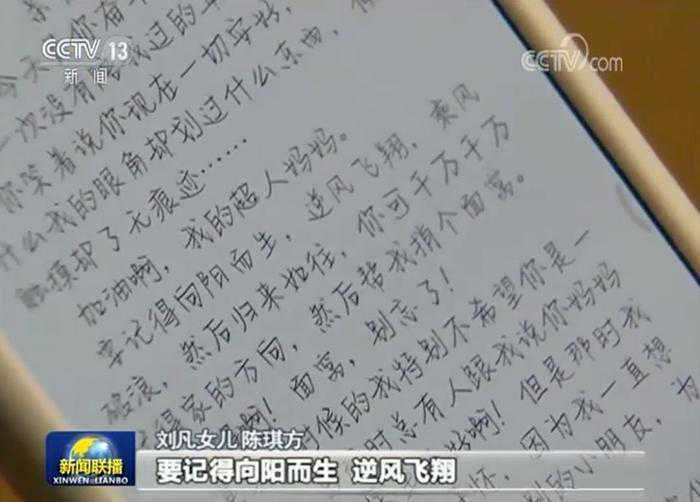 CCTV 13
新闻
CCTV.com
今天
一次没有
你笑着说你现在一切安好,
什么我的眼角却划过什么东西,
触摸却了无痕迹……
加油啊,我的超人妈妈。
要记得向阳而生,逆风飞翔,乘风
破浪,然后归来如往,你可千万千万
记得家的方向,然后帮我捎个面窝。
啊!面窝,别忘了!
时候的我特别不希望你是一
时总有人跟我说你妈妈
啊!但是那时我
怀,因为我一直想
别的小朋友,为
刘凡女儿 陈琪方
要记得向阳而生 逆风飞翔
新闻联播
XINWEN LIANBO